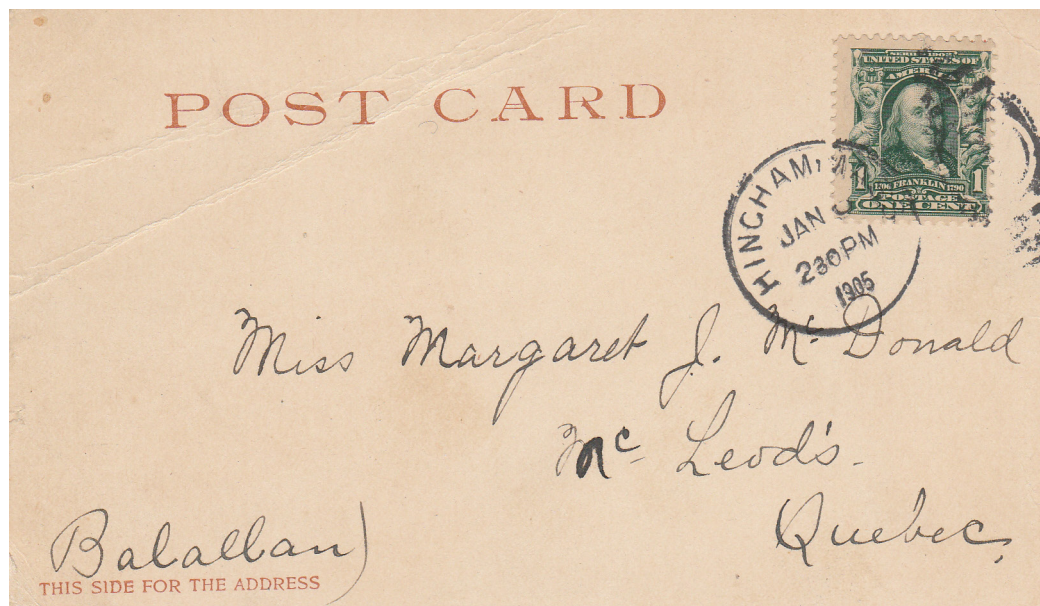 POST CARD
SERIES 1902
UNITED STATES OF
AMERICA
1 1706 FRANKLIN 1790 1
POSTAGE
ONE CENT
HINGHAM,
JAN
230PM
1905
Miss Margaret J. Mc Donald
Mc Leod's.
Quebec,
Balallan)
THIS SIDE FOR THE ADDRESS